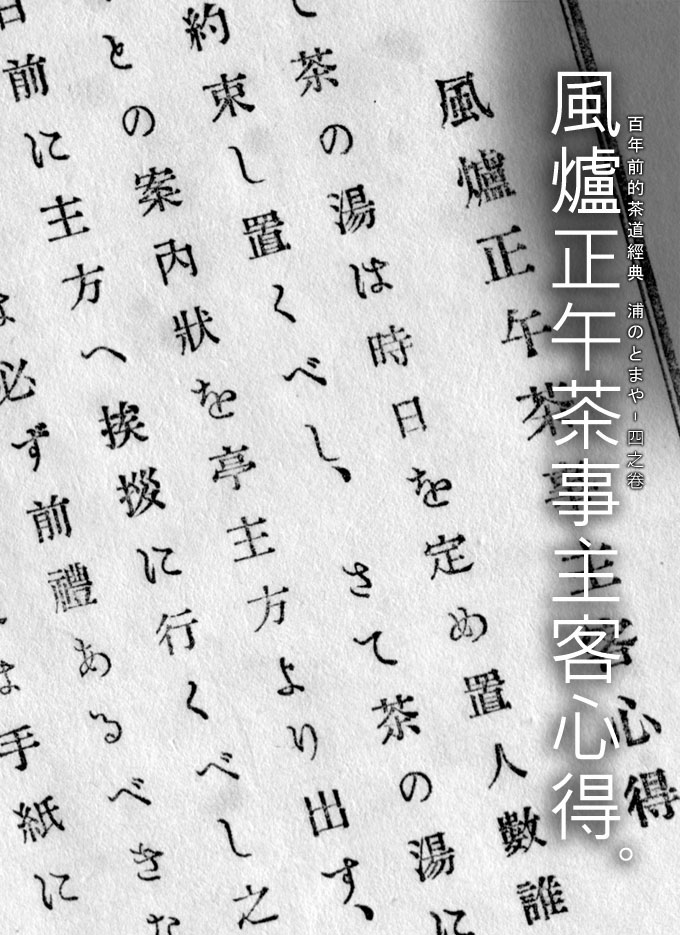 百年前的茶道經典　浦のとまや-四之卷
風爐正午茶事主客心得。
風爐正午茶事主客心得
茶の湯は時日を定め置人數誰
約束し置くべし、さて茶の湯に
との案内狀を亭主方より出す、
日前に主方へ挨拶に行くべし之
は必ず前禮あるべきな
は手紙に